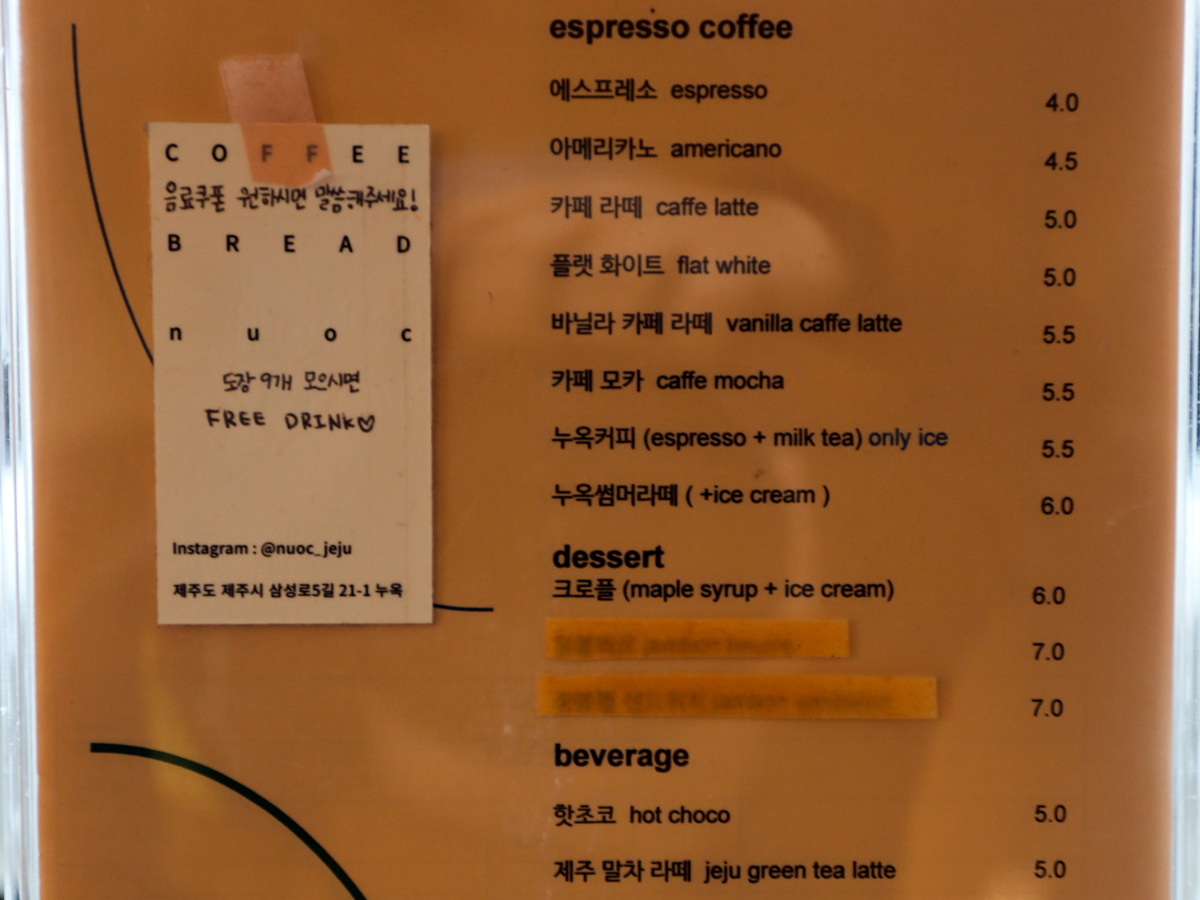 C O F F E E
음료쿠폰 원하시면 말씀해주세요!
B R E A D
n u o c
도장 9개 모으시면
FREE DRINK♡
Instagram : @nuoc_jeju
제주도 제주시 삼성로5길 21-1 누옥
espresso coffee
에스프레소 espresso 4.0
아메리카노 americano 4.5
카페 라떼 caffe latte 5.0
플랫 화이트 flat white 5.0
바닐라 카페 라떼 vanilla caffe latte 5.5
카페 모카 caffe mocha 5.5
누옥커피 (espresso + milk tea) only ice 5.5
누옥썸머라떼 ( +ice cream ) 6.0
dessert
크로플 (maple syrup + ice cream) 6.0
7.0
7.0
beverage
핫초코 hot choco 5.0
제주 말차 라떼 jeju green tea latte 5.0